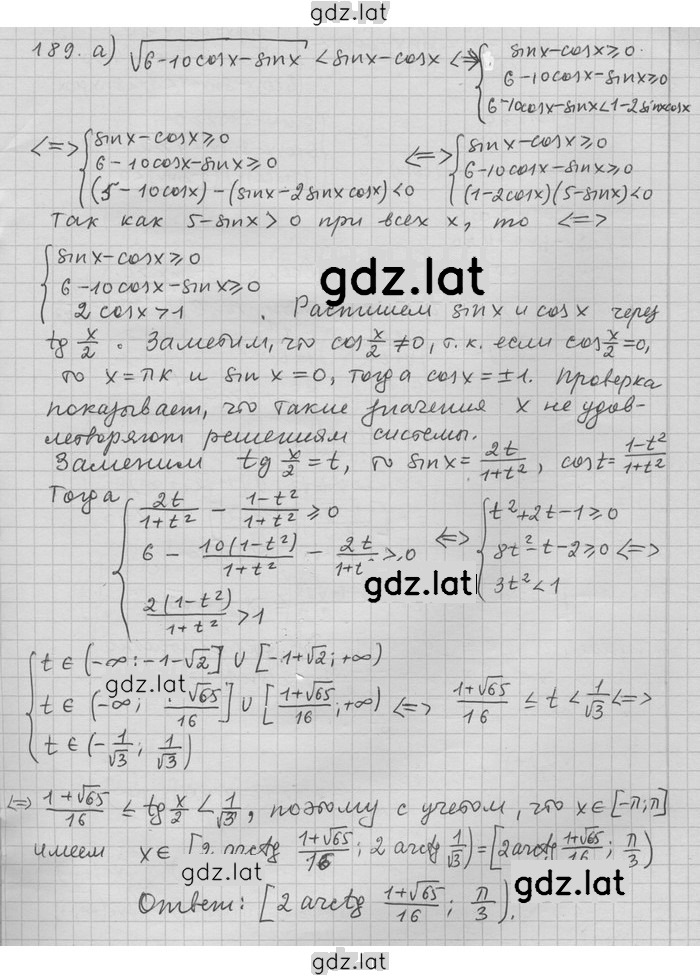 gdz.lat
189. а) √(6-10cosx-sinx) < sinx-cosx <=> { sinx-cosx≥0
6-10cosx-sinx≥0
6-10cosx-sinx<1-2sinxcosx
<=> { sinx-cosx≥0
6-10cosx-sinx≥0
(5-10cosx)-(sinx-2sinxcosx)<0
<=> { sinx-cosx≥0
6-10cosx-sinx≥0
(1-2cosx)(5-sinx)<0
Так как 5-sinx>0 при всех x, то <=>
{ sinx-cosx≥0
6-10cosx-sinx≥0
2cosx>1
gdz.lat
. Распишем sinx и cosx через
tg x/2. Заметим, что cos x/2 ≠0, т.к. если cos x/2=0,
то x=πk и sinx=0, тогда cosx=±1. Проверка
показывает, что такие значения x не удов-
летворяют решениям системы.
Заменим tg x/2=t, то sinx= 2t/(1+t²), cost= (1-t²)/(1+t²)
Тогда { 2t/(1+t²) - (1-t²)/(1+t²) ≥0
6 - 10(1-t²)/(1+t²) - 2t/(1+t²) ≥0
2(1-t²)/(1+t²) >1
<=> { t²+2t-1≥0
8t²-t-2≥0 <=>
3t²<1
gdz.lat
{ t∈(-∞:-1-√2]∪[-1+√2;+∞)
t∈(-∞; √65/16]∪[(1+√65)/16;+∞)
t∈(-1/√3; 1/√3)
<=> (1+√65)/16 ≤ t < 1/√3 <=>
gdz.lat
<=> (1+√65)/16 ≤ tg x/2 < 1/√3, поэтому с учетом, что x∈[-π;π]
имеем x∈[2 arctg (1+√65)/16; 2 arctg 1/√3) = [2arctg (1+√65)/16; π/3)
gdz.lat
gdz.lat
Ответ: [2 arctg (1+√65)/16; π/3).
gdz.lat